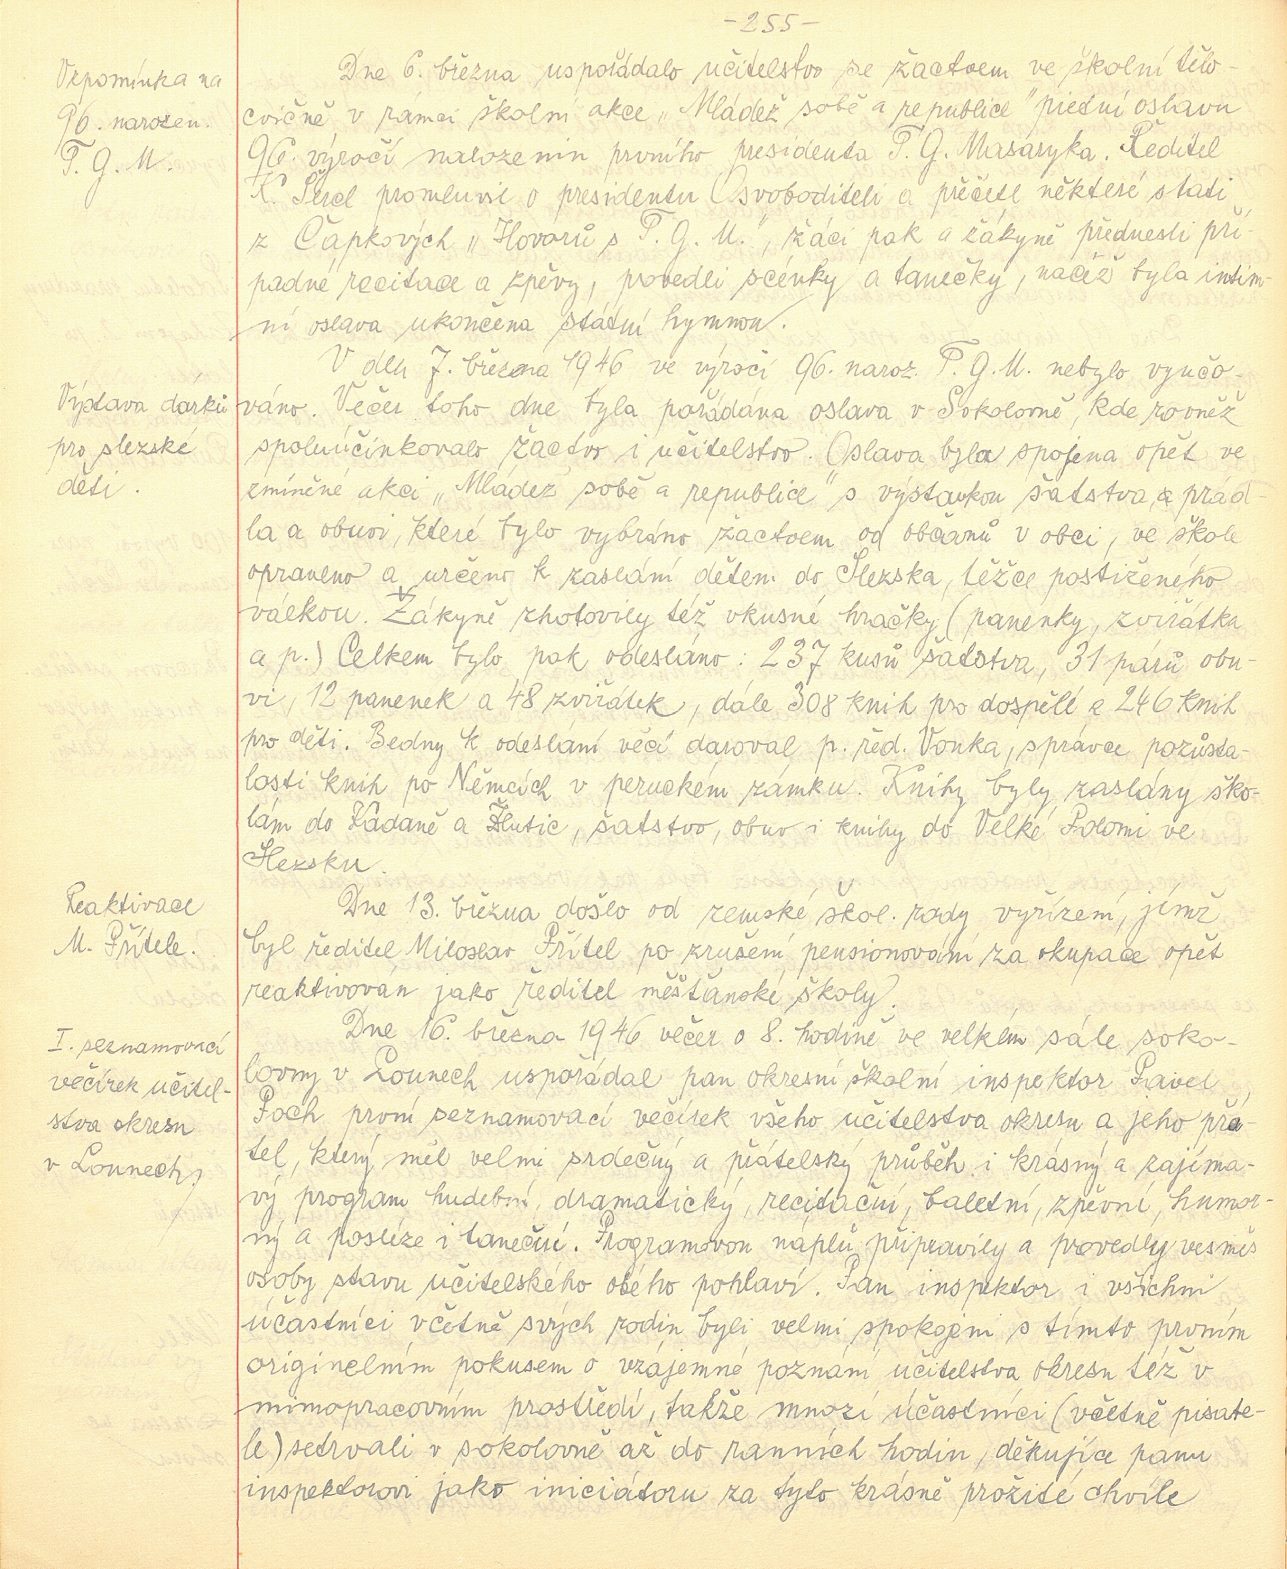 -255-
Vzpomínka na
96. narozen.
T. G. M.
Dne 6. března uspořádalo učitelstvo se žactvem ve školní tělo-
cvičně v rámci školní akce „Mládež sobě a republice" pietní oslavu
96. výročí narozenin prvního presidenta T. G. Masaryka. Ředitel
K. Šercl promluvil o presidentu Osvoboditeli a přečetl některé stati
z Čapkových „Hovorů s T. G. M.", žáci pak a žákyně přednesli pří-
padné recitace a zpěvy, provedli scénky a tanečky, načež byla intim-
ní oslava ukončena státní hymnou.
V den 7. března 1946 ve výročí 96. naroz. T. G. M. nebylo vyučo-
Výstava dárků
pro slezské
děti.
váno. Večer toho dne byla pořádána oslava v Sokolovně, kde rovněž
spoluúčinkovalo žactvo i učitelstvo. Oslava byla spojena opět ve
zmíněné akci „Mládež sobě a republice" s výstavkou šatstva, a prád-
la a obuvi, které bylo vybráno žactvem od občanů v obci, ve škole
opraveno a určeno k zaslání dětem do Slezska, těžce postiženého
válkou. Žákyně zhotovily též vkusné hračky (panenky, zvířátka
a p.) Celkem bylo pak odesláno: 237 kusů šatstva, 31 párů obu-
vi, 12 panenek a 48 zvířátek, dále 308 knih pro dospělé a 246 knih
pro děti. Bedny k odeslání věcí daroval p. řed. Vonka, správce pozůsta-
losti knih po Němcích v peruckém zámku. Knihy byly zaslány ško-
lám do Kadaně a Žlutic, šatstvo, obuv i knihy do Velké Polomi ve
Slezsku.
Reaktivace
M. Přítele.
Dne 13. března došlo od zemské škol. rady vyřízení, jímž
byl ředitel Miloslav Přítel po zrušení pensionování za okupace opět
reaktivován jako ředitel měšťanské školy.
I. seznamovací
večírek učitel-
stva okresu
v Lounech,
Dne 16. března 1946 večer o 8. hodině ve velkém sále soko-
lovny v Lounech uspořádal pan okresní školní inspektor Pavel
Poch první seznamovací večírek všeho učitelstva okresu a jeho přá-
tel, který měl velmi srdečný a přátelský průběh i krásný a zajíma-
vý program hudební, dramatický, recitační, baletní, zpěvní, humor-
ný a posléze i taneční. Programovou náplň připravily a provedly vesměs
osoby stavu učitelského obého pohlaví. Pan inspektor i všichni
účastníci včetně svých rodin byli velmi spokojeni s tímto prvním
originelním pokusem o vzájemné poznání učitelstva okresu též v
mimopracovním prostředí, takže mnozí účastníci (včetně pisate-
le) setrvali v sokolovně až do ranních hodin, děkujíce panu
inspektorovi jako iniciátoru za tyto krásně prožité chvíle